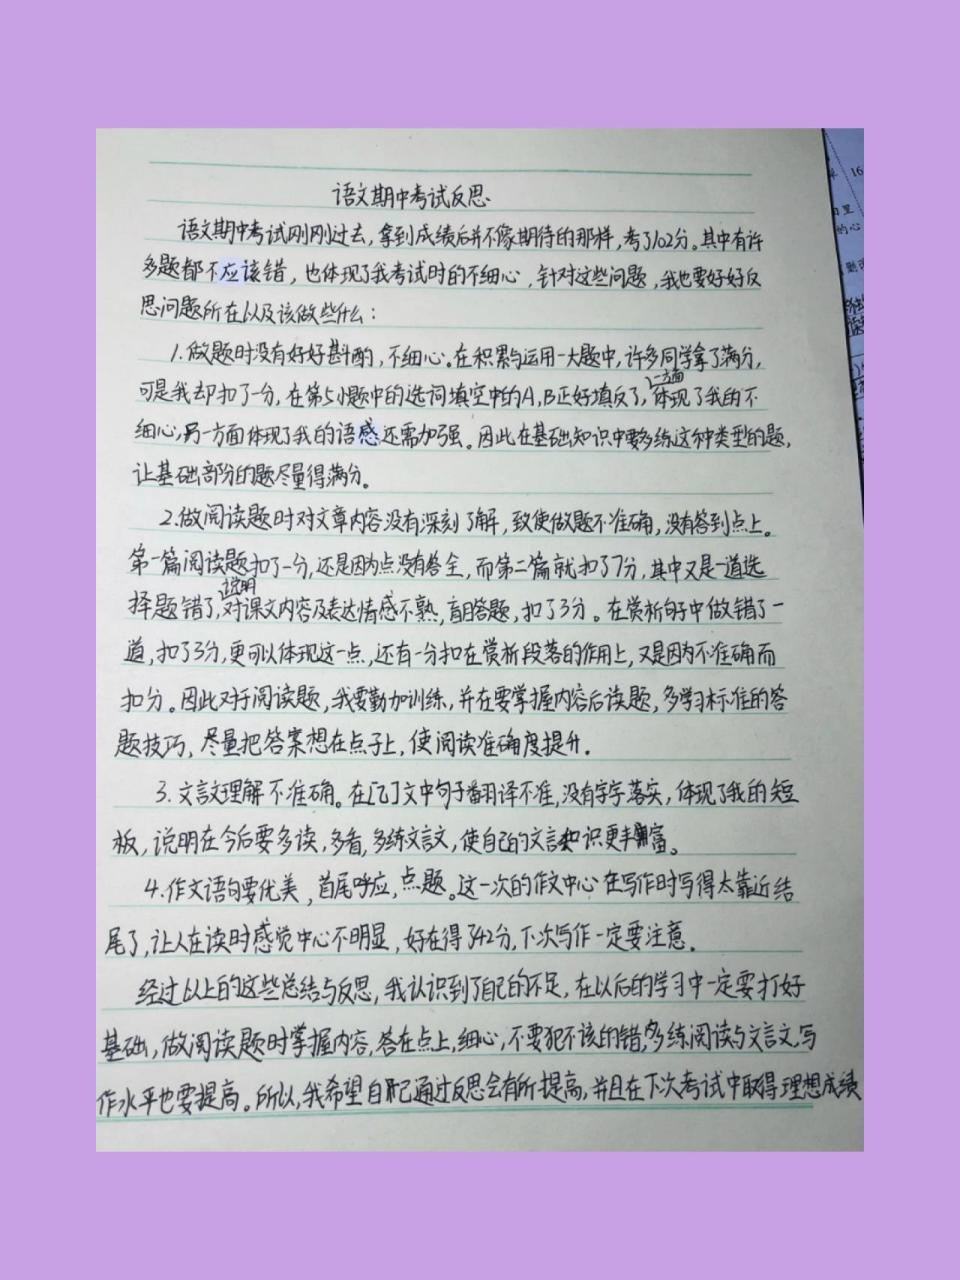 语文期中考试反思
语文期中考试刚刚过去，拿到成绩后并不像期待的那样，考了102分。其中有许
多题都不应该错，也体现了我考试时的不细心，针对这些问题，我也要好好反
思问题所在以及该做些什么：
1.做题时没有好好斟酌，不细心。在积累与运用一大题中，许多同学拿了满分，
可是我却扣了一分，在第5小题中的选词填空中的A，B正好填反了，一方面体现了我的不
细心，另一方面体现了我的语感还需加强。因此在基础知识中要多练这种类型的题，
让基础部分的题尽量得满分。
2.做阅读题时对文章内容没有深刻了解，致使做题不准确，没有答到点上。
第一篇阅读题扣了一分，还是因为点没有答全，而第二篇就扣了7分，其中又是一道选
择题错了，说明对课文内容及表达情感不熟，盲目答题，扣了3分。在赏析句子中做错了一
道，扣了3分，更可以体现这一点，还有一分扣在赏析段落的作用上，又是因为不准确而
扣分。因此对于阅读题，我要勤加训练，并在要掌握内容后读题，多学习标准的答
题技巧，尽量把答案想在点子上，使阅读准确度提升.
3.文言文理解不准确。在[乙]文中句子翻译不准，没有字字落实，体现了我的短
板，说明在今后要多读，多看，多练文言文，使自己的文言知识更丰富。
4.作文语句要优美，首尾呼应，点题。这一次的作文中心在写作时写得太靠近结
尾了，让人在读时感觉中心不明显，好在得了42分，下次写作一定要注意.
经过以上的这些总结与反思，我认识到了自己的不足，在以后的学习中一定要打好
基础，做阅读题时掌握内容，答在点上，细心，不要犯不该的错，多练阅读与文言文，写
作水平也要提高。所以，我希望自己通过反思会有所提高，并且在下次考试中取得理想成绩
16